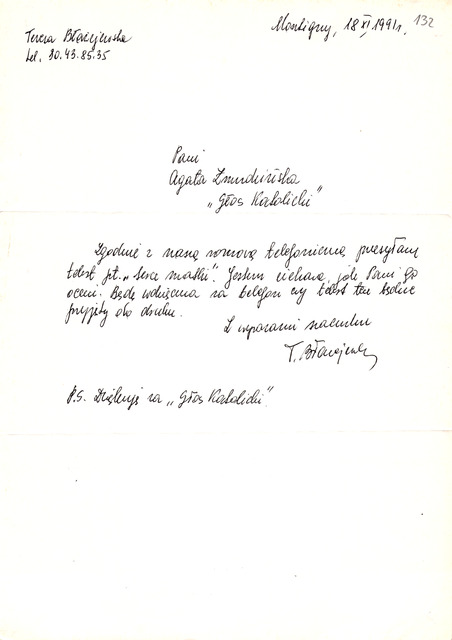 Teresa Błażejewska
tel. 30.43.85.35
Montigny, 18 XI, 1991r.
132
Pani
Agata Żmudzińska
„Głos Katolicki"
Zgodnie z naszą rozmową telefoniczną przesyłam
tekst pt. „Serce matki". Jestem ciekawa, jak Pani go
oceni. Będę wdzięczna za telefon czy tekst ten będzie
przyjęty do druku.
Z wyrazami szacunku
T. Błażejewska
P.S. Dziękuję za „Głos Katolicki".